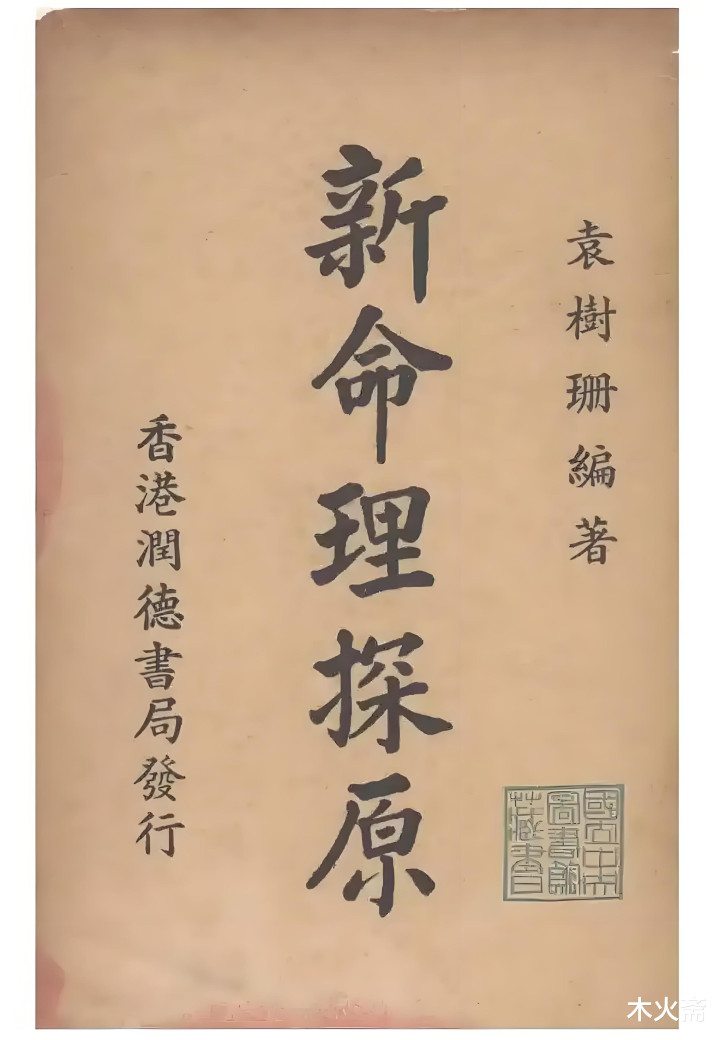 袁樹珊編著
新命理探原
香港潤德書局發行
國立中央
圖書館
藏書
木火斋